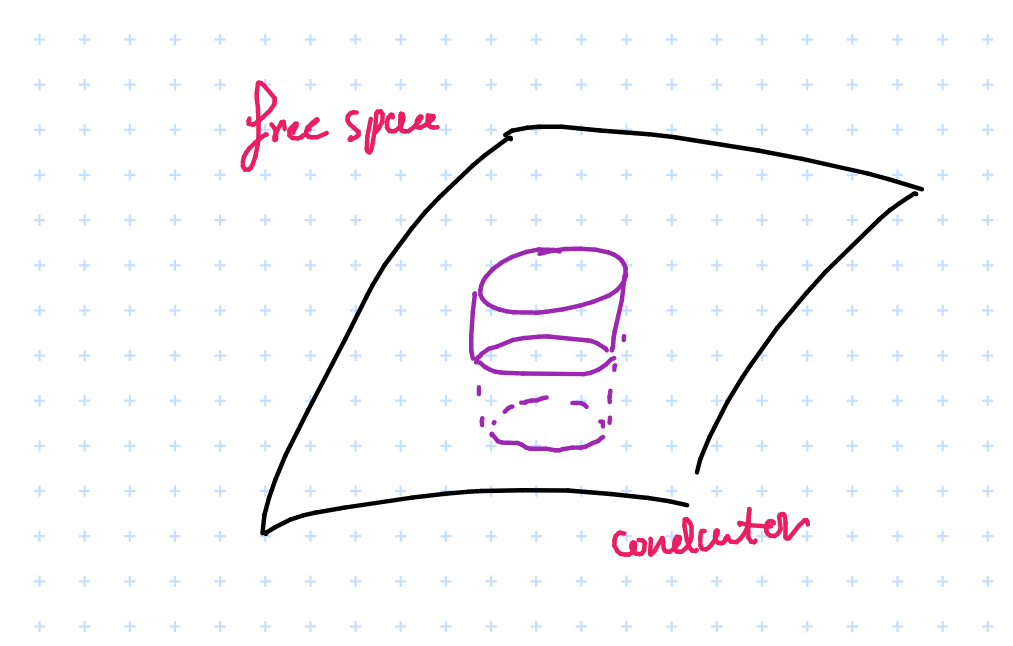 free space
conductor